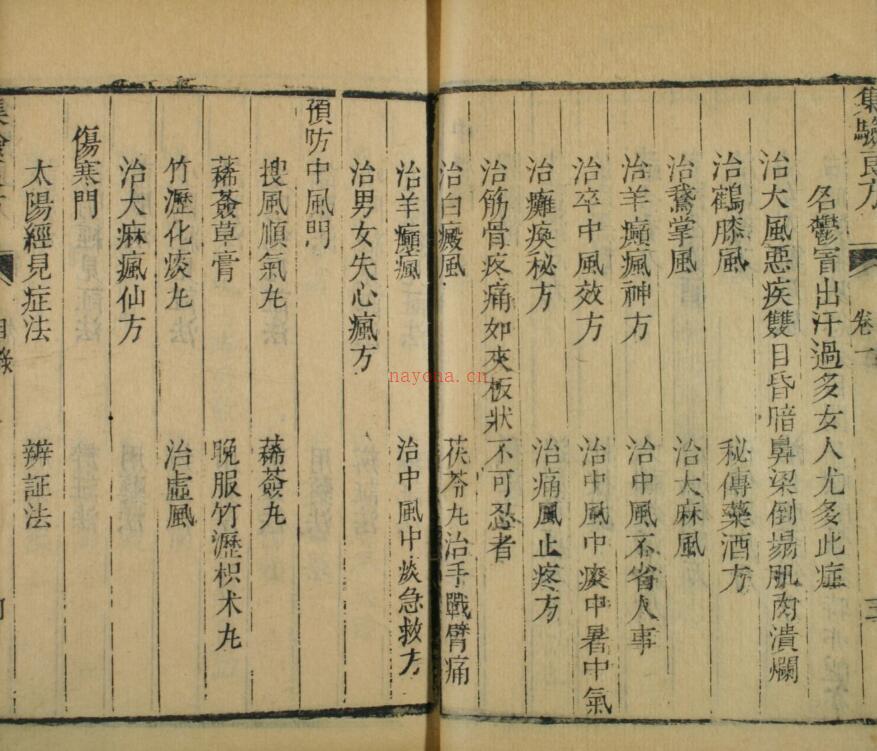 集驗良方 卷一
名鬱冒出汗過多女人尤多此症
治大風惡疾雙目昏暗鼻梁倒塌肌肉潰爛
治鶴膝風 秘傳藥酒方
治鵞掌風 治大麻風
治羊癲瘋神方 治中風不省人事
治卒中風效方 治中風中痰中暑中氣
治癱瘓秘方 治痛風止疼方
治筋骨疼痛如夾板狀不可忍者
治白癜風 茯苓丸治手戰臂痛
治羊癲瘋 治中風中痰急救方
治男女失心瘋方
預防中風門
搜風順氣丸 薟丸
薟草膏 晚服竹瀝枳术丸
竹瀝化痰丸 治虛風
治大麻瘋仙方
傷寒門
太陽經見症法 辨証法
目錄
nayona.cn